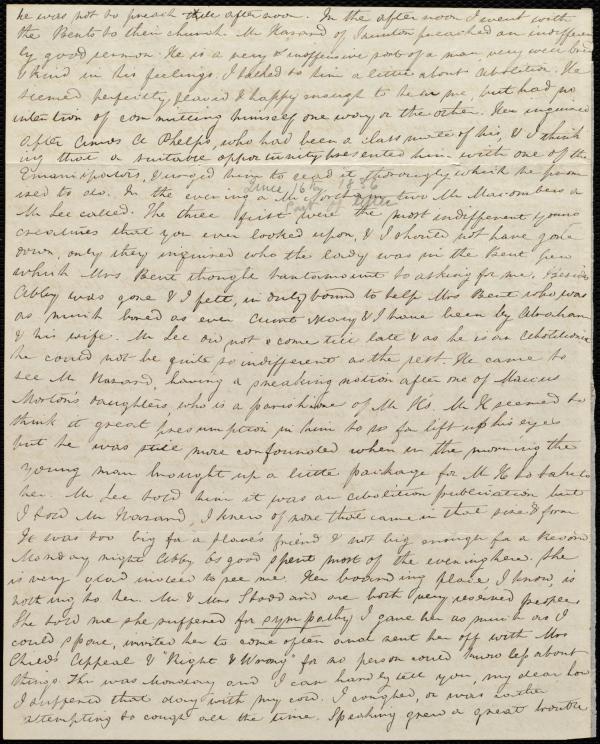 he was not to preach till afternoon. In the afternoon I went with
the Bents to their church Mr Hazard of Taunton preached an indifferent
ly good sermon. He is a very inoffensive sort of a man, very well bred
& kind in his feelings. I talked to him a little about abolition. He
seemed perfectly pleased & happy enough to hear me, but had no
intention of committing himself one way or the other. He inquired
after Amos A Phelps, who had been a classmate of his, & I think
ing that a suitable opportunity presented him with one of the
Emancipators, & urged him to read it thoroughly which he prom
ised to do. In the evening a Mr two Mr Macombers a
June 16th 1836
Mr Lee called. The three first were the most indifferent young
creatures that you ever looked upon, & I should not have gone
down, only they inquired who the lady was in the Bent pew
which Mrs Bent thought tantamount to asking for me. Besides
Abby was gone & I felt, in duty bound to help Mrs Bent who was
as much bored as ever Aunt Mary & I have been by Abraham
& his wife. Mr Lee did not come till late & as he is an Abolitionist
he could not be quite so indifferent as the rest. He came to
see Mr Hazard, having a sneaking notion after one of Marcus
Morton's daughters, who is a parishioner of Mr H's. Mr H seemed to
think it great presumption in him to so far lift up his eyes
but he was still more confounded when in the morning the
young man brought up a little package for Mr H to take to
her. Mr Lee told him it was an abolition publication but
I told Mr Hazard, I knew of none that came in that size & form
It was too big for a slave's friend & not big enough for a Record
Monday night Abby Osgood spent most of the evening here. She
is very glad indeed to see me. Her boarding place, I know, is
nothing to her. Mr & Mrs Stoddard are both very reserved people.
She told me she suffered for sympathy. I gave her as much as I
could spare, invited her to come often and sent her off with Mrs
Child's Appeal & "Right & Wrong" for no person could know less about
things. This was Monday and I can hardly tell you, my dear how
I suffered that day with my cold. I coughed, or was rather
attempting to cough all the time. Speaking grew a great trouble